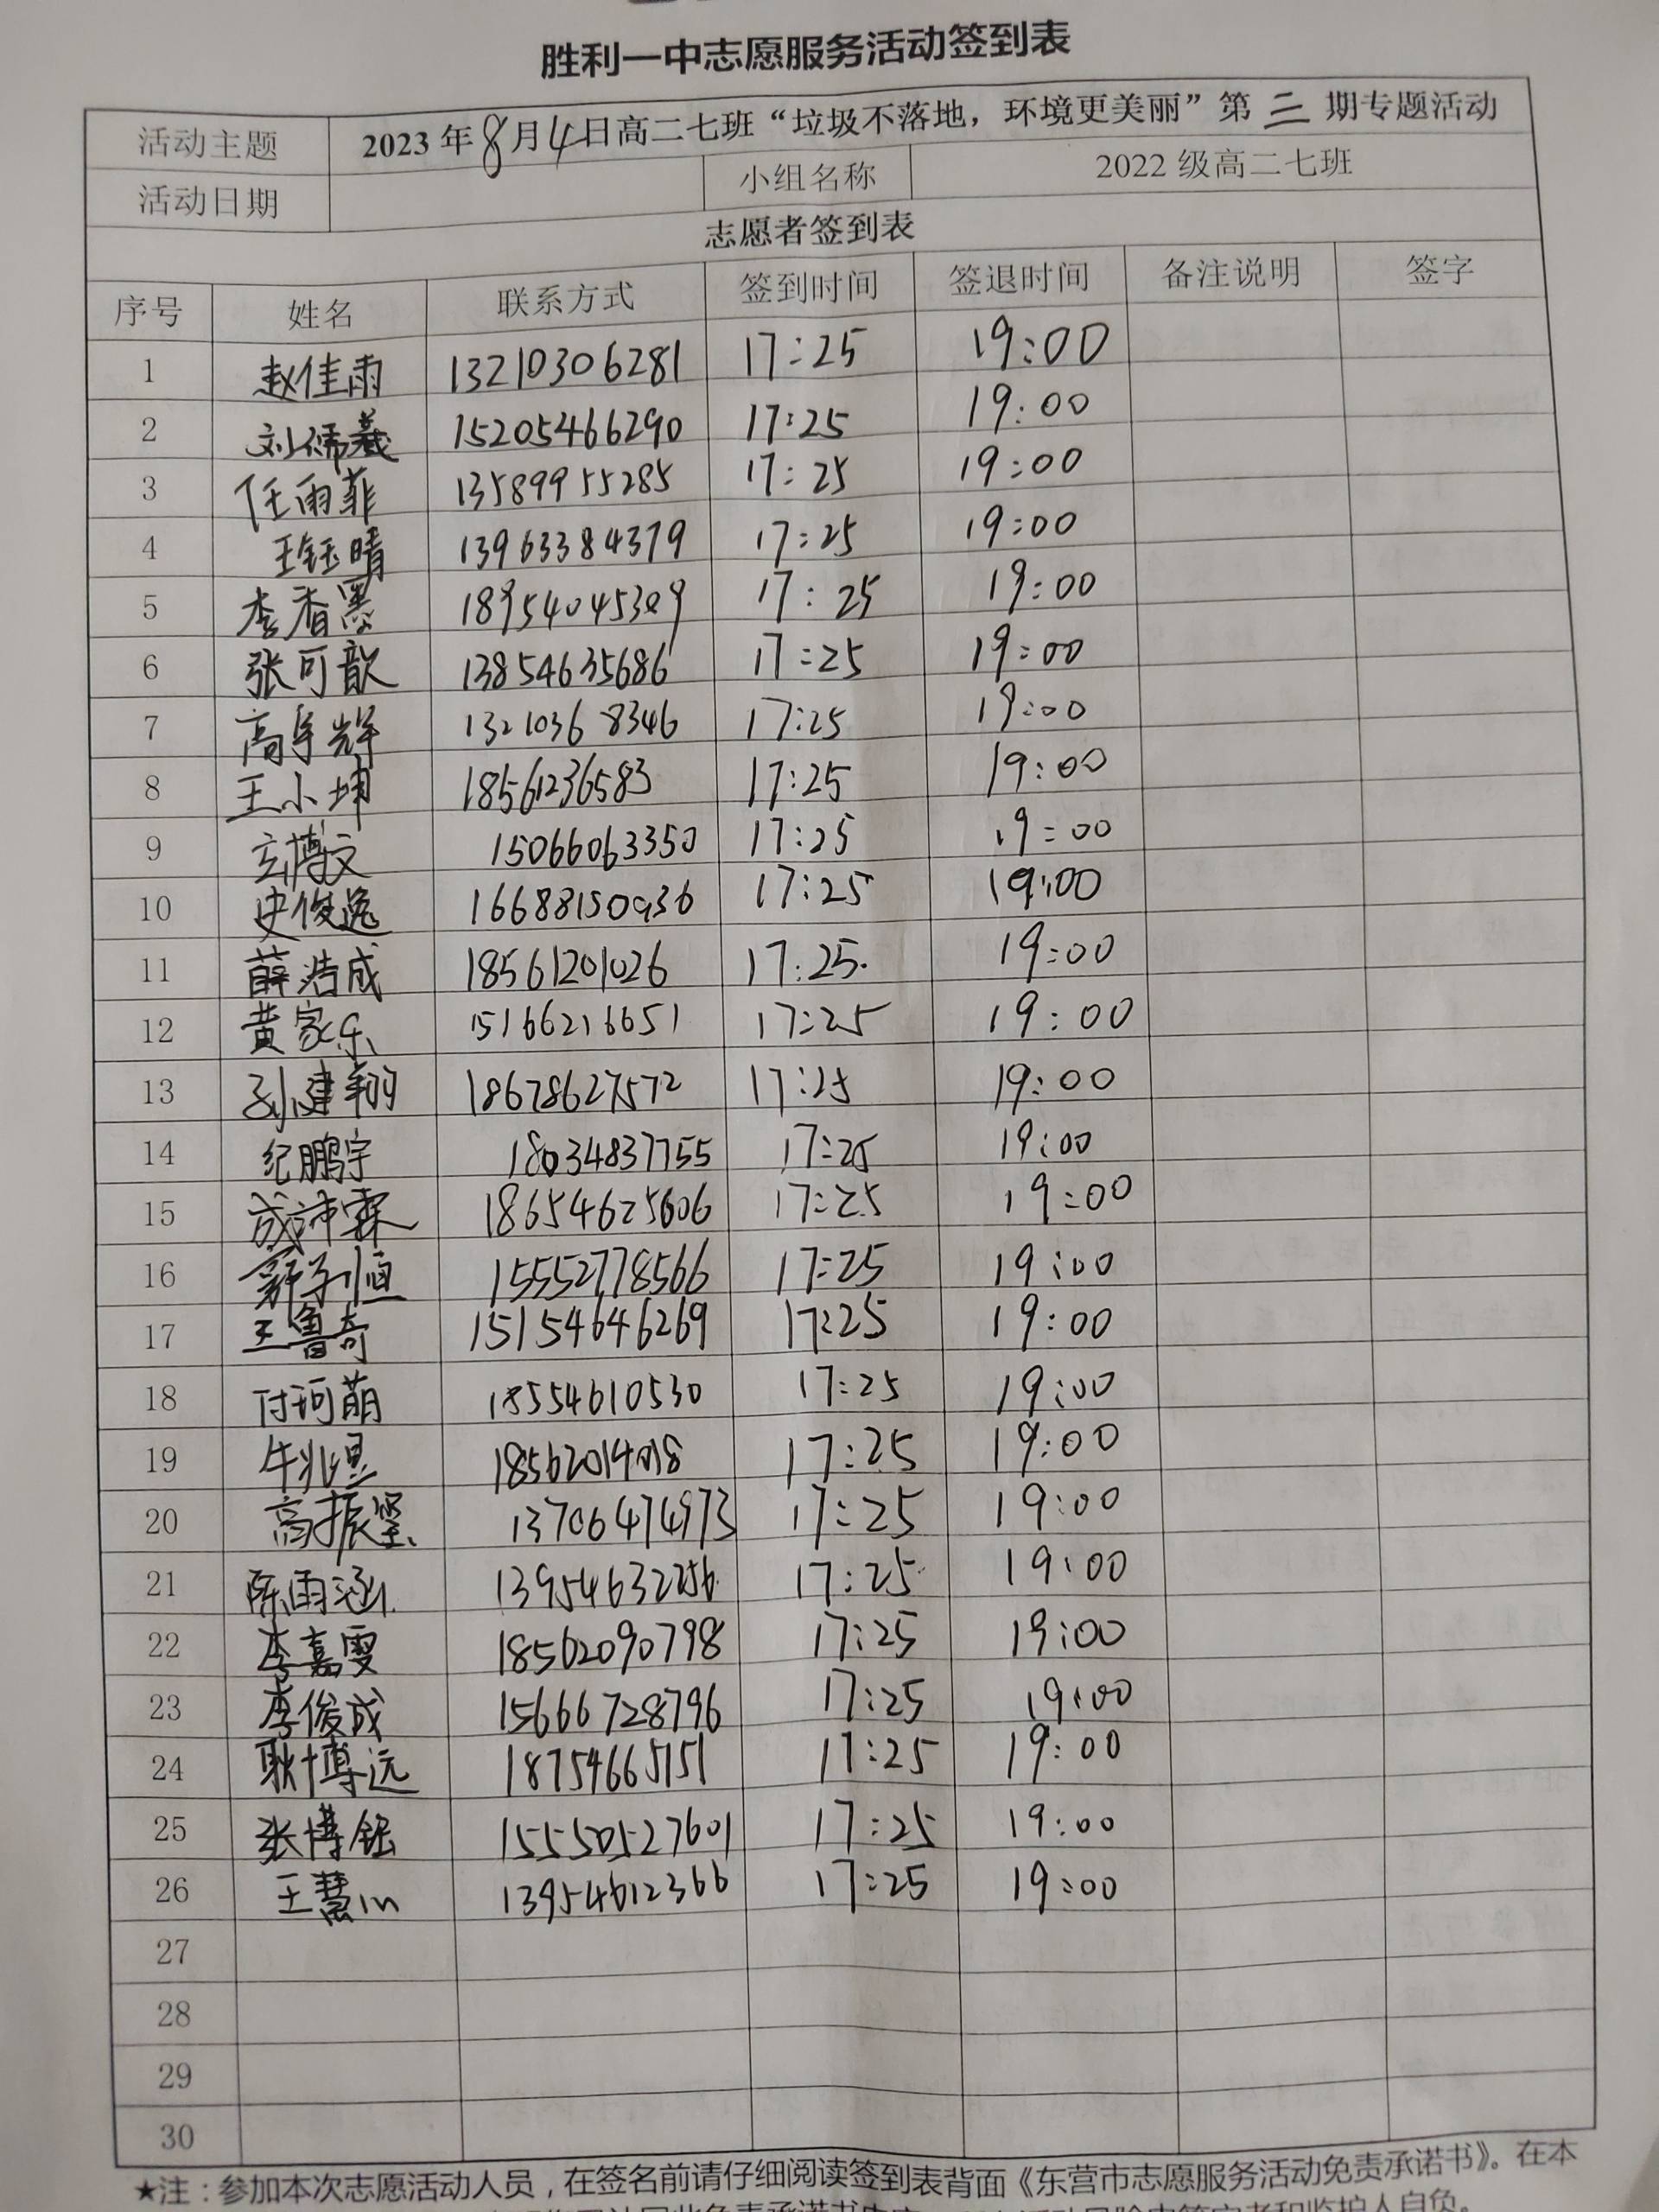 胜利一中志愿服务活动签到表
活动主题 2023年8月4日高二七班“垃圾不落地，环境更美丽”第三期专题活动
活动日期 小组名称 2022级高二七班
志愿者签到表
序号 姓名 联系方式 签到时间 签退时间 备注说明 签字
1 赵佳雨 13210306281 17:25 19:00
2 刘儒羲 15205466290 17:25 19:00
3 任雨菲 13589955285 17:25 19:00
4 王钰晴 13963384379 17:25 19:00
5 李香 18954045309 17:25 19:00
6 张可歆 13854635686 17:25 19:00
7 高宇辉 13210368346 17:25 19:00
8 王小坤 18561236583 17:25 19:00
9 玄博文 15066063350 17:25 19:00
10 史俊逸 16688150936 17:25 19:00
11 薛浩成 18561201026 17:25 19:00
12 黄家乐 15166216651 17:25 19:00
13 孙建翔 18678627572 17:25 19:00
14 纪鹏宇 18034837755 17:25 19:00
15 成沛霖 18654625606 17:25 19:00
16 子恒 15552778566 17:25 19:00
17 王鲁奇 15154646269 17:25 19:00
18 付珂萌 18554610530 17:25 19:00
19 牛兆 17:25 19:00
20 高振玺 13706474973 17:25 19:00
21 陈雨涵 13954632256 17:25 19:00
22 李嘉雯 18562090798 17:25 19:00
23 李俊成 15666728796 17:25 19:00
24 耿博远 18754665151 17:25 19:00
25 张博铭 15550527601 17:25 19:00
26 王慧心 13954612366 17:25 19:00
27
28
29
30
★注：参加本次志愿活动人员，在签名前请仔细阅读签到表背面《东营市志愿服务活动免责承诺书》。在本